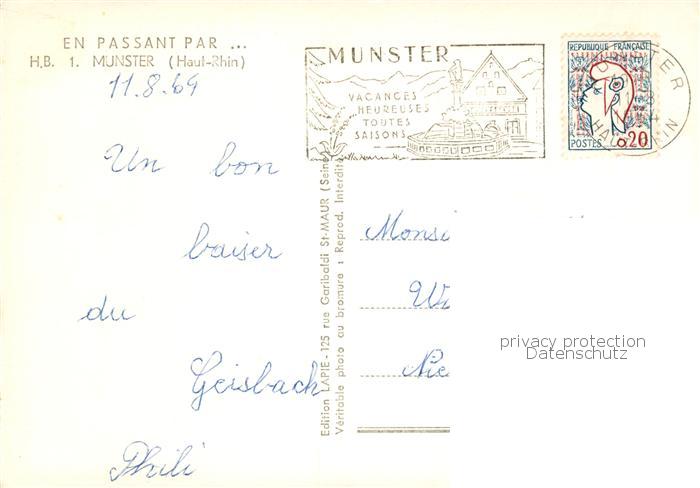 EN PASSANT PAR ...
H.B. 1. MUNSTER (Haut-Rhin)
11.8.64
Un bon
baiser
du
Geisbach
Phili
Edition LAPIE - 125 rue Garibaldi St-MAUR (Seine)
Véritable photo au bromure : Reprod. Interdite
MUNSTER
VACANCES
HEUREUSES
TOUTES
SAISONS
REPUBLIQUE FRANÇAISE
POSTES 0.20
MUNSTER
HAUT RHIN
Monsi
privacy protection
Datenschutz